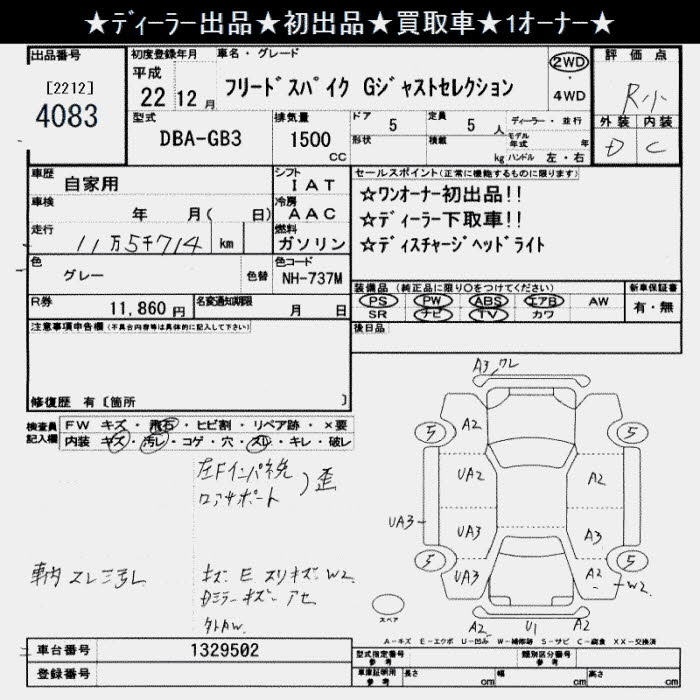 ★ディーラー出品★初出品★買取車★1オーナー★
出品番号
[2212]
4083
初度登録年月
平成
22 12 月
車名・グレード
フリードスパイク Gジャストセレクション
2WD
・
4WD
評価点
R小
外装 内装
D C
型式
DBA-GB3
排気量
1500
CC
ドア
5
形状
定員
5 人
積載
kg
ディーラー・並行
モデル年式 年
ハンドル 左・右
車歴
自家用
シフト
IAT
車検
年 月( 日)
冷房
AAC
走行
11万5千714 km
燃料
ガソリン
色
グレー
色替
色コード
NH-737M
R券
11,860 円
名変通知期限
月 日
セールスポイント(正常に機能するものに限ります)
☆ワンオーナー初出品!!
☆ディーラー下取車!!
☆ディスチャージヘッドライト
装備品 (純正品に限り○をつけてください)
PS PW ABS エアB AW
SR ナビ TV カワ
新車保証書
有・無
後日品
注意事項申告欄 (不具合内容等は具体的に記入して下さい)
修復歴 有〔箇所 〕
検査員記入欄
FW キズ・飛石・ヒビ割・リペア跡・×要
内装 キズ・汚レ・コゲ・穴・スレ・キレ・破レ
左Fインパネ先
ロアサポート
)歪
車内 スレ 三号し
キズ E スリキズ W2
Dミラーキズ アセ
外AW
A3 ワレ
5
A2
5
UA2
A2
UA3
UA3
A3
5
UA3
A2
W2
5
スペア
A2
U1
A2
A-キズ E-エクボ U-凹み W-補修跡 S-サビ C-腐食 XX-交換済
車台番号
1329502
登録番号
型式指定番号
参考
類別区分番号
車庫証明用
参考
長さ cm
幅 cm
高さ cm